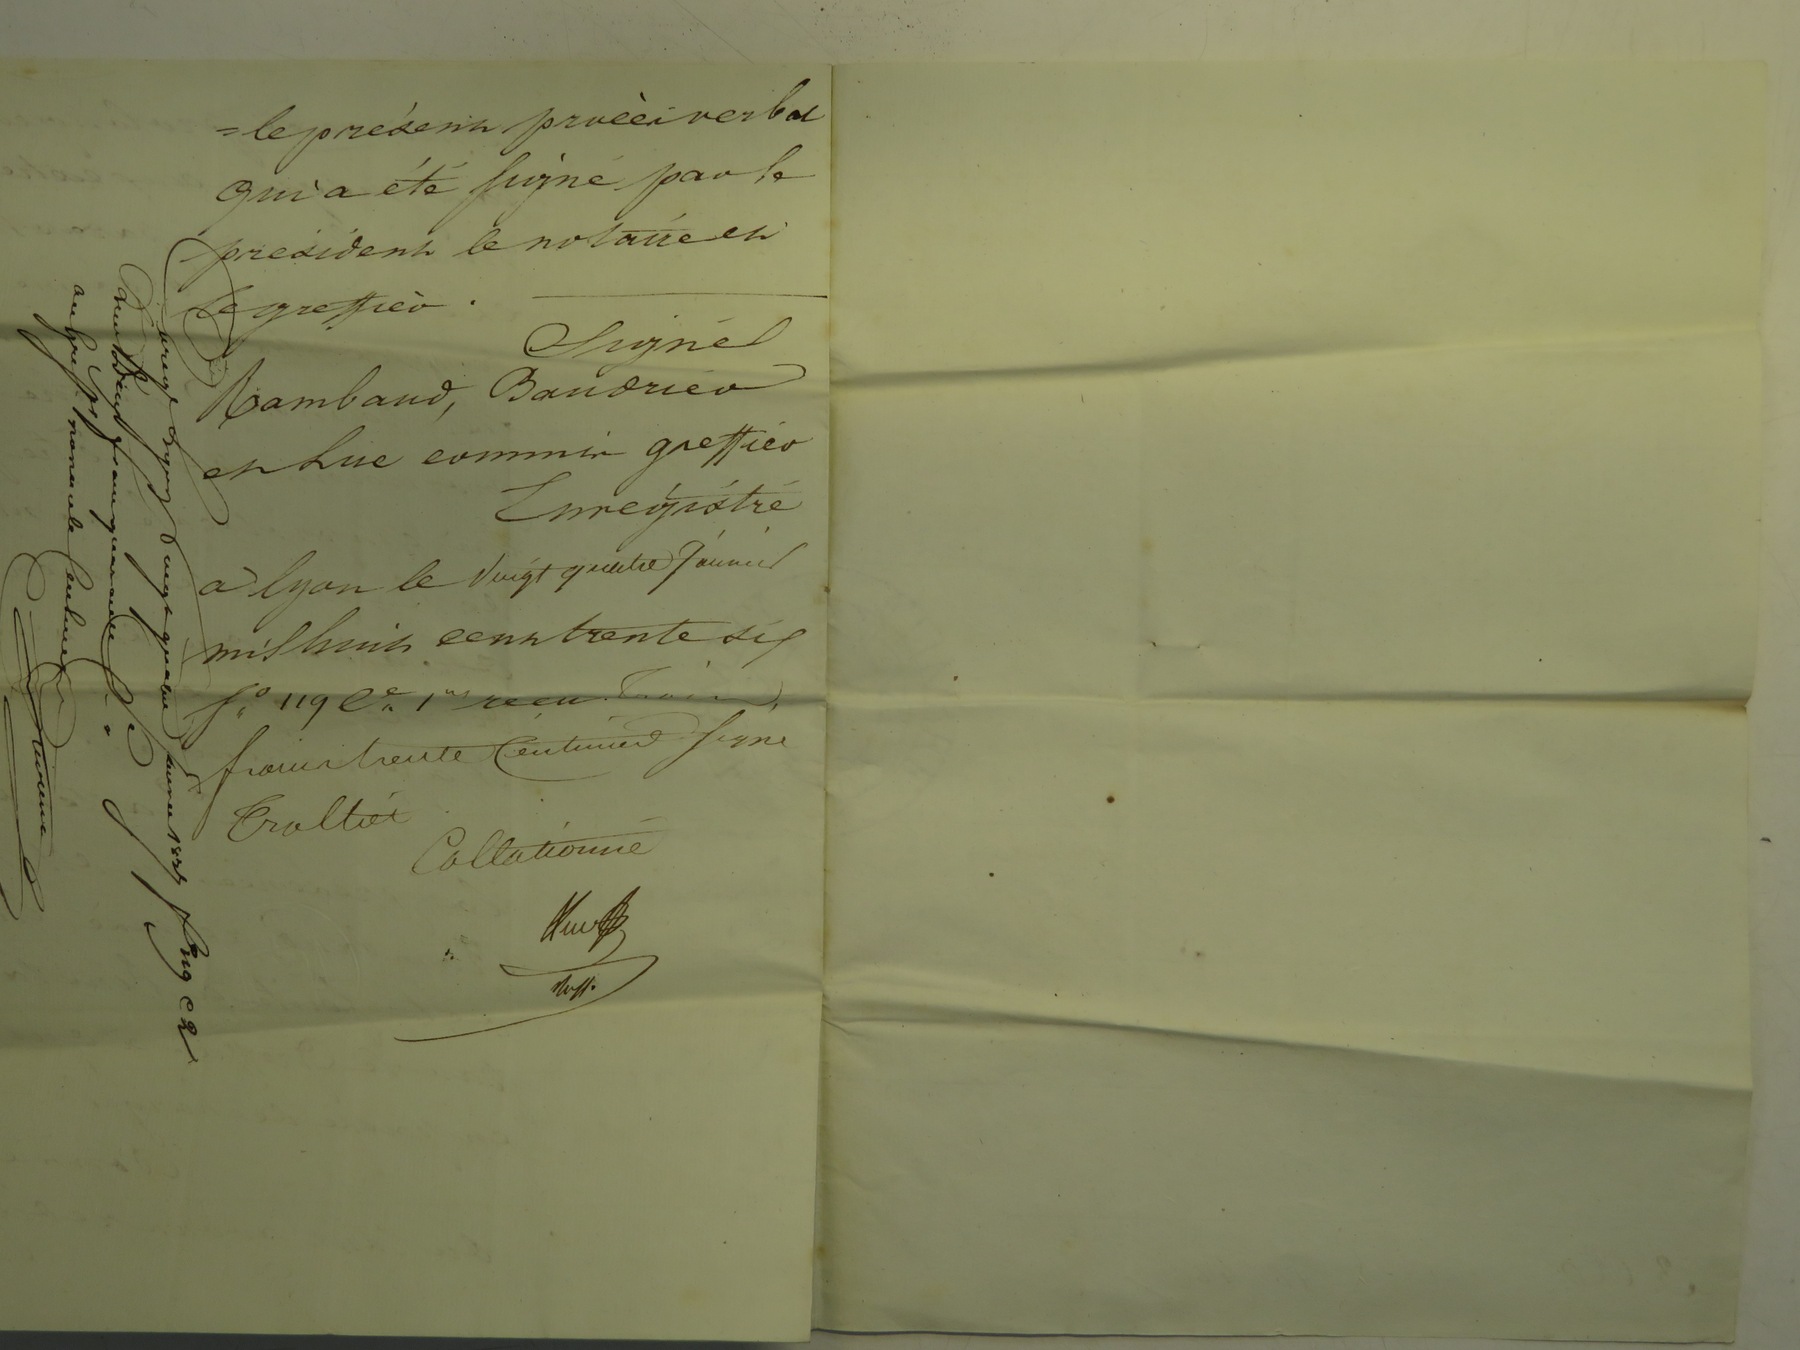 =le présent procès verbal
qui a été signé par le
président le notaire et
le greffier.
Signé
Rambaud, Baudrier
et Luc commis greffier
Enregistré
à lyon le vingt quatre Janvier
mil huit cent trente six
f.° 119 C.e 1re reçu Trois
francs trente Centimes signé
Troltier
Collationné
à Lyon le vingt quatre Janvier 183 f. 119 C 2
francs quarante
au greffe centimes